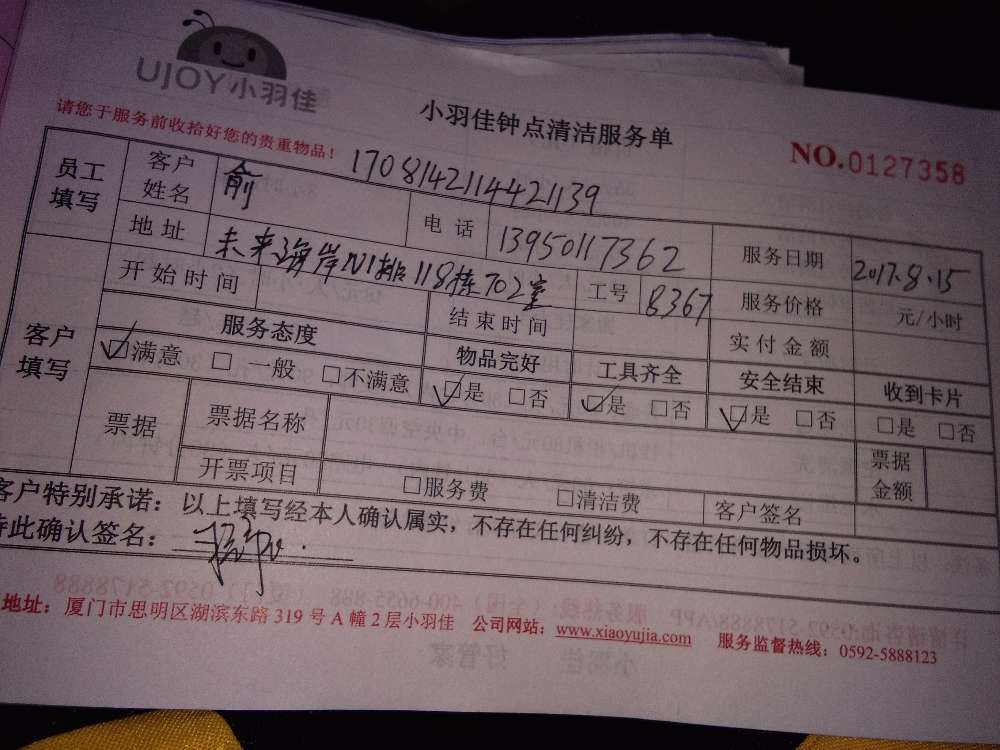 UJOY小羽佳
小羽佳钟点清洁服务单
NO.0127358
请您于服务前收拾好您的贵重物品!
1708142114421139
员工填写 客户姓名 俞 电话 13950117362 服务日期 2017.8.15
地址 未来海岸N1排118栋702室 工号 8367 服务价格 元/小时
客户填写 开始时间 结束时间 实付金额
服务态度 物品完好 工具齐全 安全结束 收到卡片
☑满意 □一般 □不满意 ☑是 □否 ☑是 □否 ☑是 □否 □是 □否
票据 票据名称 票据金额
开票项目 □服务费 □清洁费 客户签名
客户特别承诺：以上填写经本人确认属实，不存在任何纠纷，不存在任何物品损坏。
特此确认签名：
地址：厦门市思明区湖滨东路 319 号 A 幢 2 层小羽佳 公司网站：www.xiaoyujia.com 服务监督热线：0592-5888123